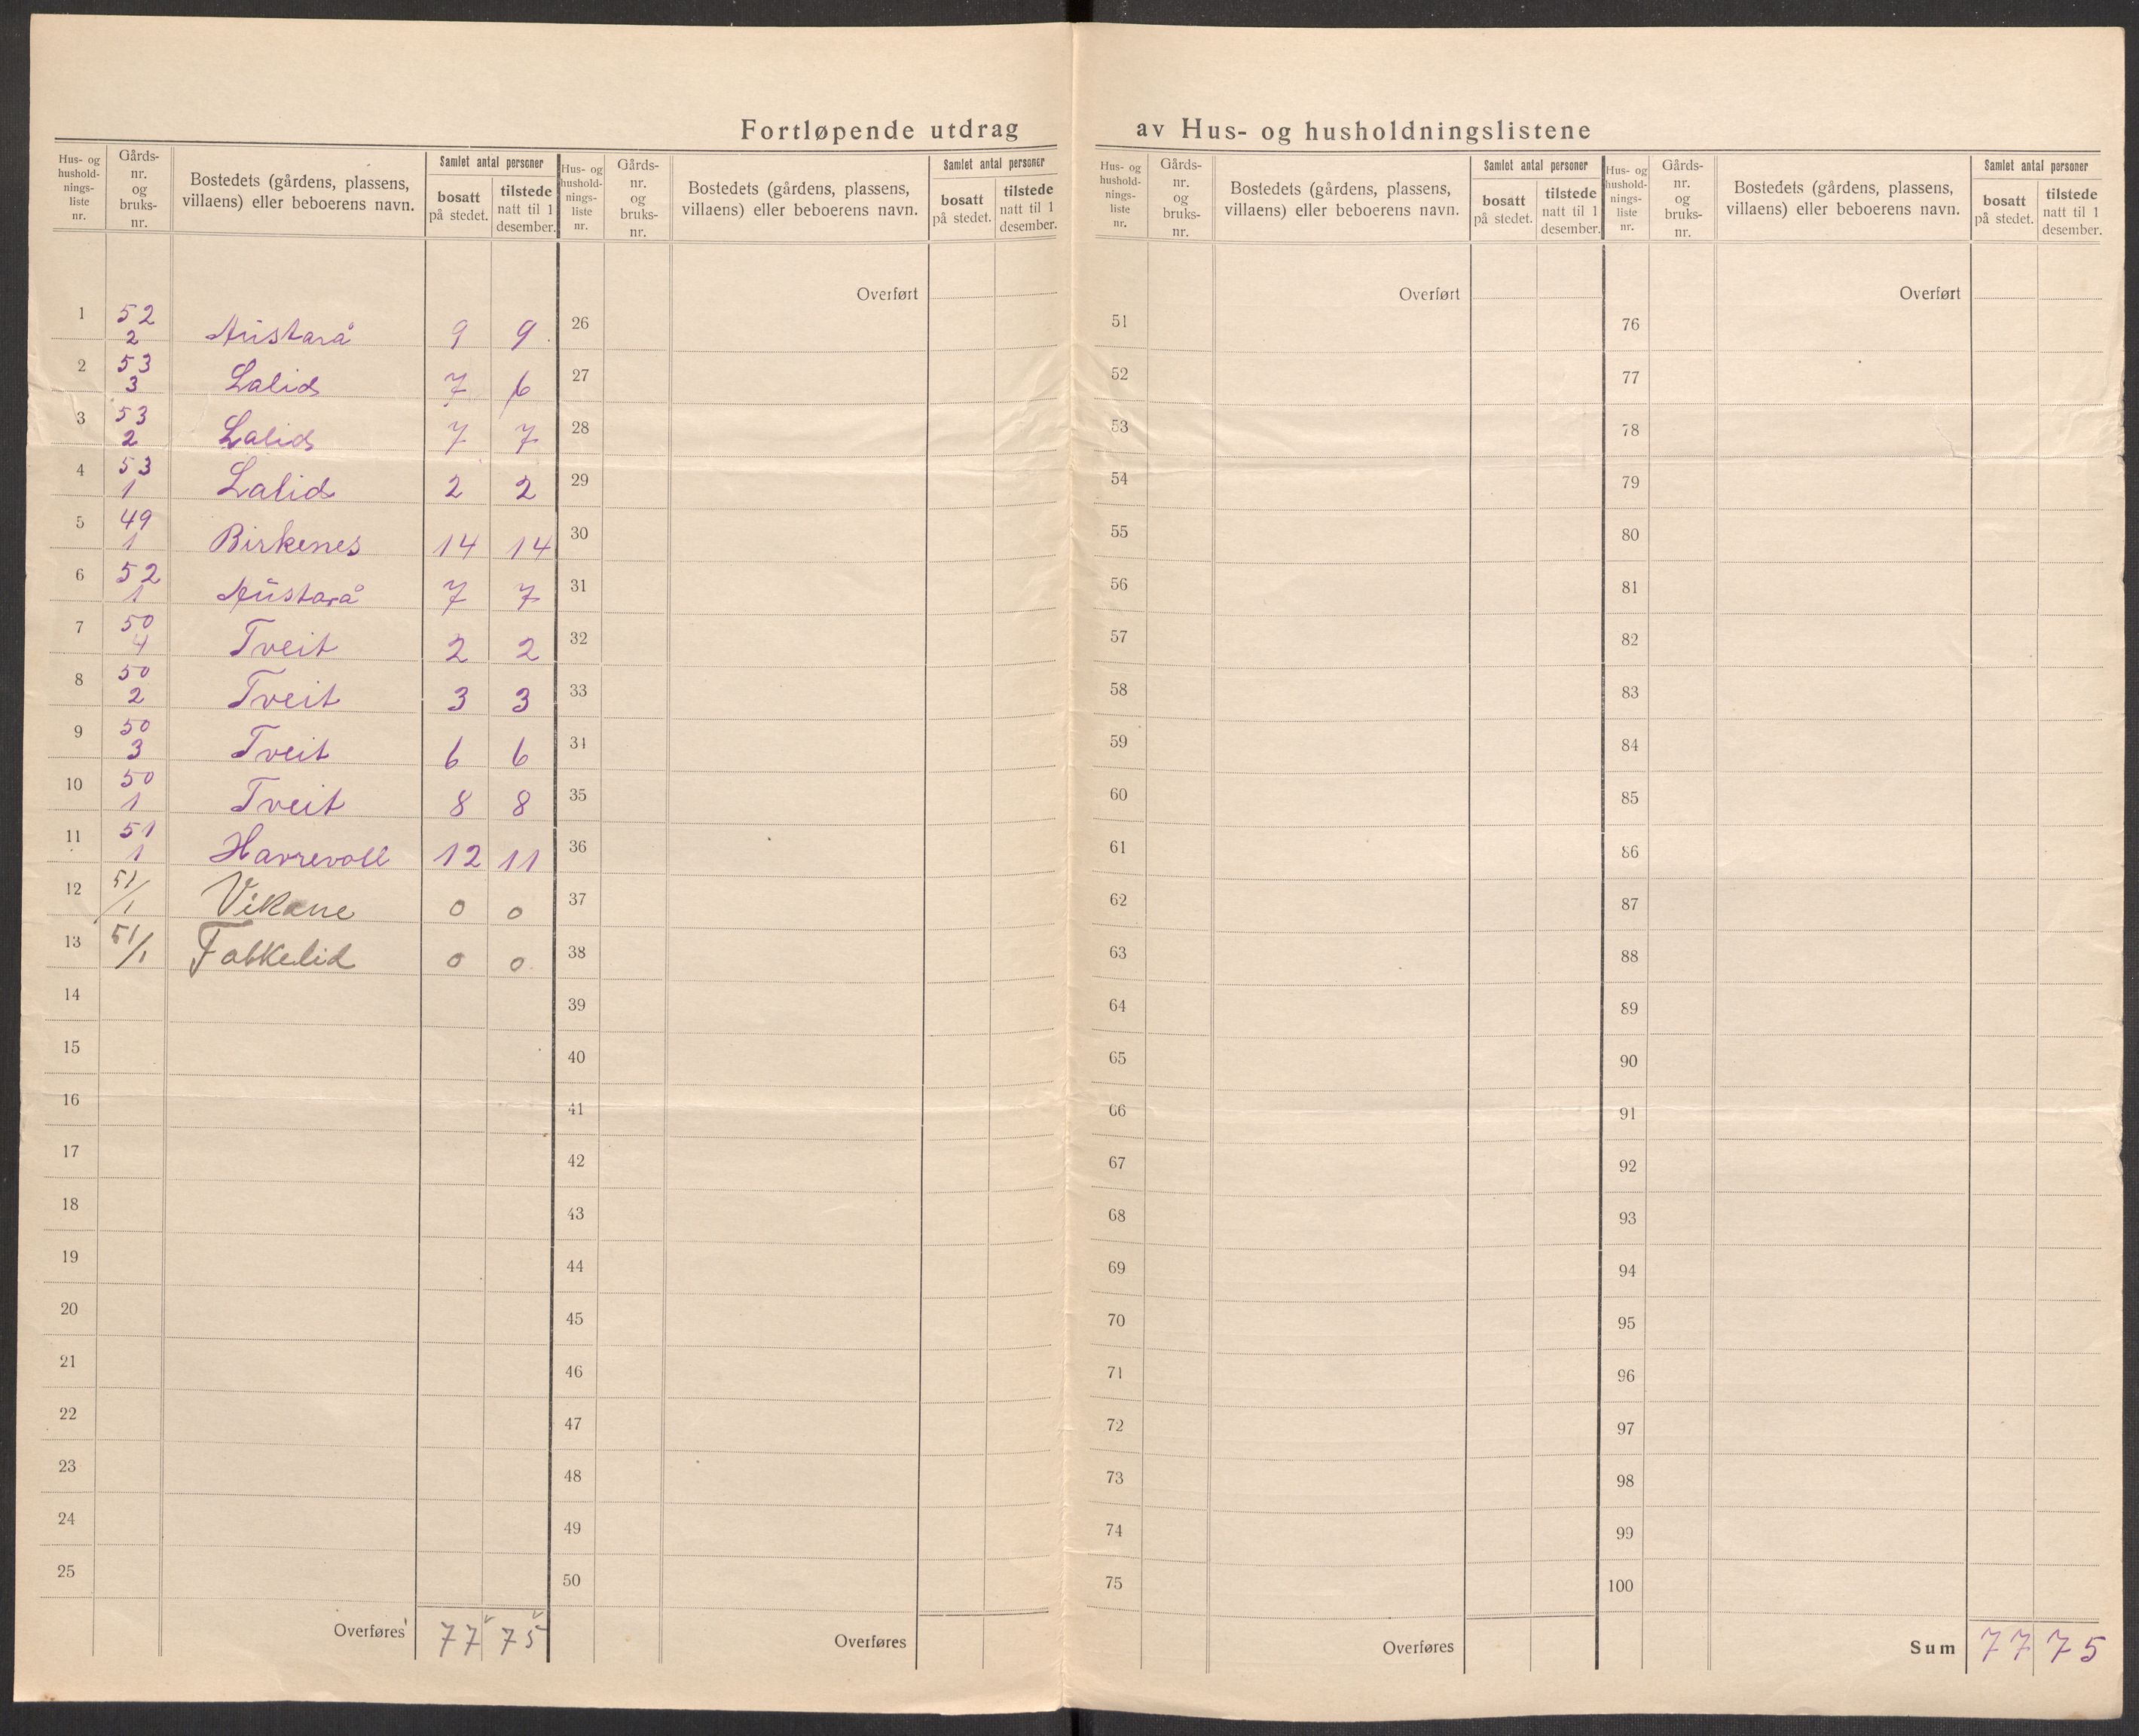 Fortløpende utdrag av Hus- og husholdningslistene
Hus- og husholdnings-liste nr. | Gårds-nr. og bruks-nr. | Bostedets (gårdens, plassens, villaens) eller beboerens navn. | Samlet antal personer | bosatt på stedet. | tilstede natt til 1 desember.
1 52 2 Austarå 9 9
2 53 3 Lalid 7 6
3 53 2 Lalid 7 7
4 53 1 Lalid 2 2
5 49 1 Birkenes 14 14
6 52 1 Austarå 7 7
7 50 4 Tveit 2 2
8 50 2 Tveit 3 3
9 50 3 Tveit 6 6
10 50 1 Tveit 8 8
11 51 1 Havrevoll 12 11
12 51/1 Vikane 0 0
13 51/1 0 0
14
15
16
17
18
19
20
21
22
23
24
25
Overføres 77 75
Hus- og husholdnings-liste nr. | Gårds-nr. og bruks-nr. | Bostedets (gårdens, plassens, villaens) eller beboerens navn. | Samlet antal personer | bosatt på stedet. | tilstede natt til 1 desember.
Overført
26
27
28
29
30
31
32
33
34
35
36
37
38
39
40
41
42
43
44
45
46
47
48
49
50
Overføres
Hus- og husholdnings-liste nr. | Gårds-nr. og bruks-nr. | Bostedets (gårdens, plassens, villaens) eller beboerens navn. | Samlet antal personer | bosatt på stedet. | tilstede natt til 1 desember.
Overført
51
52
53
54
55
56
57
58
59
60
61
62
63
64
65
66
67
68
69
70
71
72
73
74
75
Overføres
Hus- og husholdnings-liste nr. | Gårds-nr. og bruks-nr. | Bostedets (gårdens, plassens, villaens) eller beboerens navn. | Samlet antal personer | bosatt på stedet. | tilstede natt til 1 desember.
Overført
76
77
78
79
80
81
82
83
84
85
86
87
88
89
90
91
92
93
94
95
96
97
98
99
100
Sum 77 75